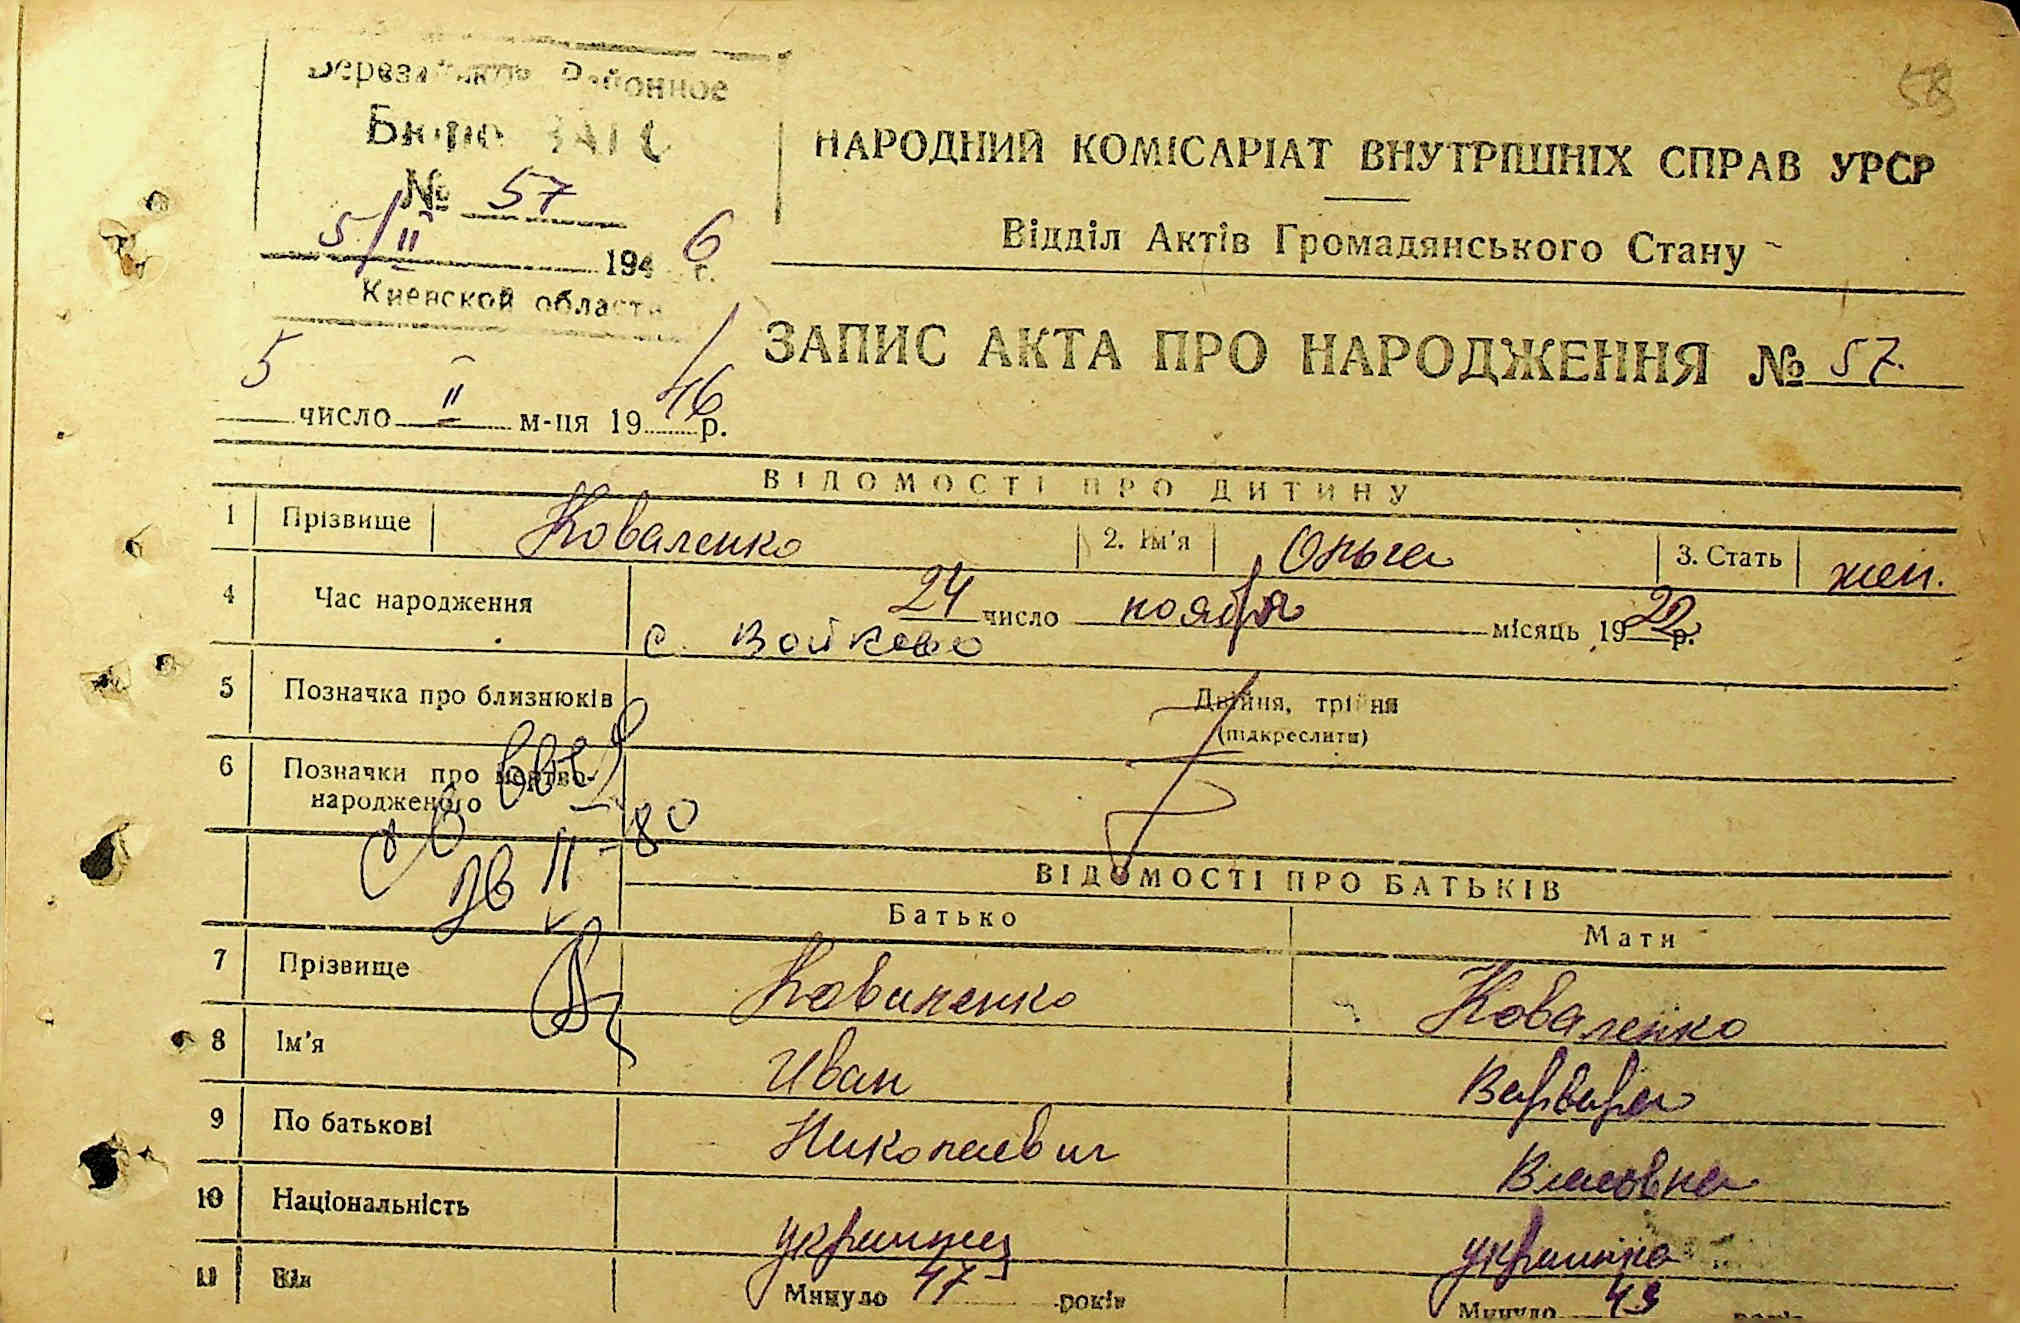 58
Районное
Бюро ЗАГС
№ 57
5/II 1946 г.
Киевской области
НАРОДНИЙ КОМІСАРІАТ ВНУТРІШНІХ СПРАВ УРСР
Відділ Актів Громадянського Стану
ЗАПИС АКТА ПРО НАРОДЖЕННЯ № 57.
5 число II м-ця 1946 р.
ВІДОМОСТІ ПРО ДИТИНУ
1 Прізвище Коваленко 2. Ім'я Ольга 3. Стать жен.
4 Час народження 24 число ноября місяць 1922 р.
с. Войково
5 Позначка про близнюків Двійня, трійня
(підкреслити)
6 Позначки про мертво-
народженого
II-80
ВІДОМОСТІ ПРО БАТЬКІВ
Батько Мати
7 Прізвище Коваленко Коваленко
8 Ім'я Иван Варвара
9 По батькові Николаевич Власовна
10 Національність украинец украинка
11 Вік Минуло 47 років Минуло 43 років